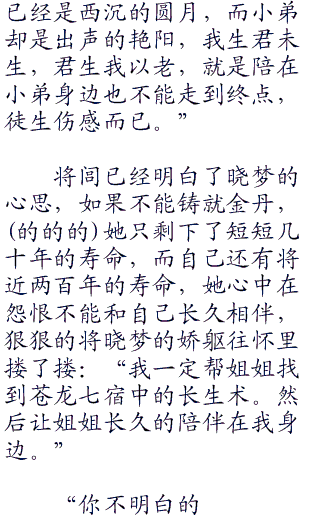 已经是西沉的圆月，而小弟
却是出声的艳阳，我生君未
生，君生我以老，就是陪在
小弟身边也不能走到终点，
徒生伤感而已。”
将闾已经明白了晓梦的
心思，如果不能铸就金丹，
(的的的)她只剩下了短短几
十年的寿命，而自己还有将
近两百年的寿命，她心中在
怨恨不能和自己长久相伴，
狠狠的将晓梦的娇躯往怀里
搂了搂：“我一定帮姐姐找
到苍龙七宿中的长生术。然
后让姐姐长久的陪伴在我身
边。”
“你不明白的